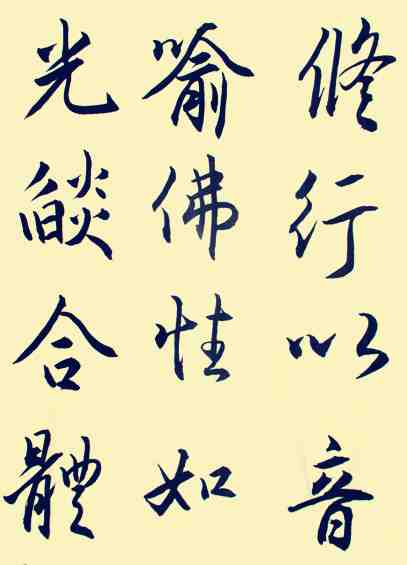 修行以音
喻佛性如
光燄合體